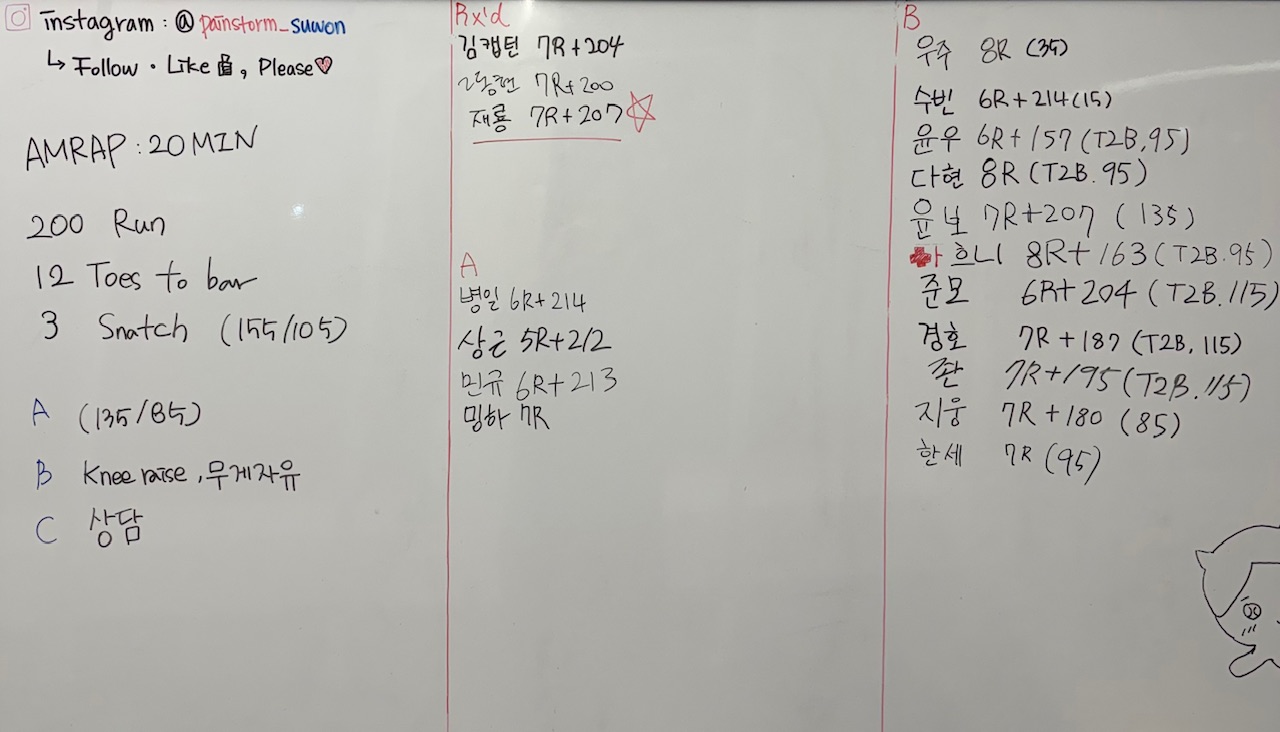 instagram : @ painstorm_suwon
↳ Follow · Like👍, Please♡
AMRAP : 20 MIN
200 Run
12 Toes to bar
3 Snatch (155/105)
A (135/85)
B Knee raise, 무게자유
C 상담
Rx'd
김캡틴 7R+204
7R+200
재룡 7R+207 ☆
A
병일 6R+214
상근 5R+212
민규 6R+213
밍하 7R
B
우주 8R (35)
수빈 6R+214(15)
윤우 6R+157 (T2B, 95)
다현 8R (T2B. 95)
윤보 7R+207 (135)
흐니 8R+163 (T2B. 95)
준모 6R+204 (T2B. 115)
경호 7R+187 (T2B, 115)
쫜 7R+195 (T2B. 115)
지웅 7R+180 (85)
한세 7R (95)